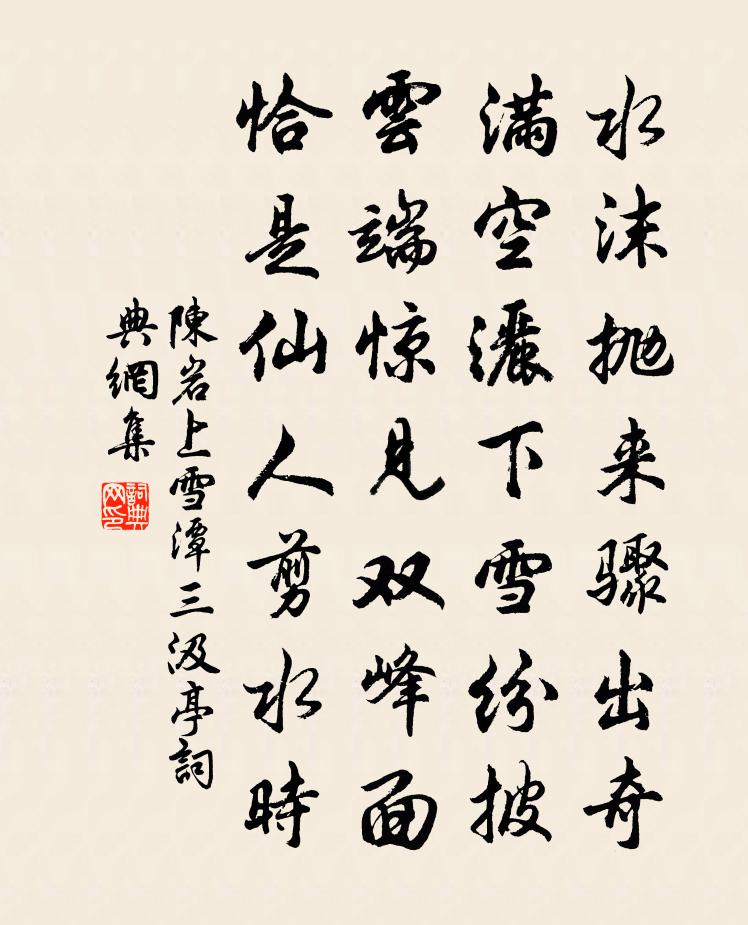 水沫抛来骤出奇
满空灑下雪纷披
雲端惊見双峰面
恰是仙人剪水時
陳岩上雪潭三汲亭詞
典網集
詞典
网印